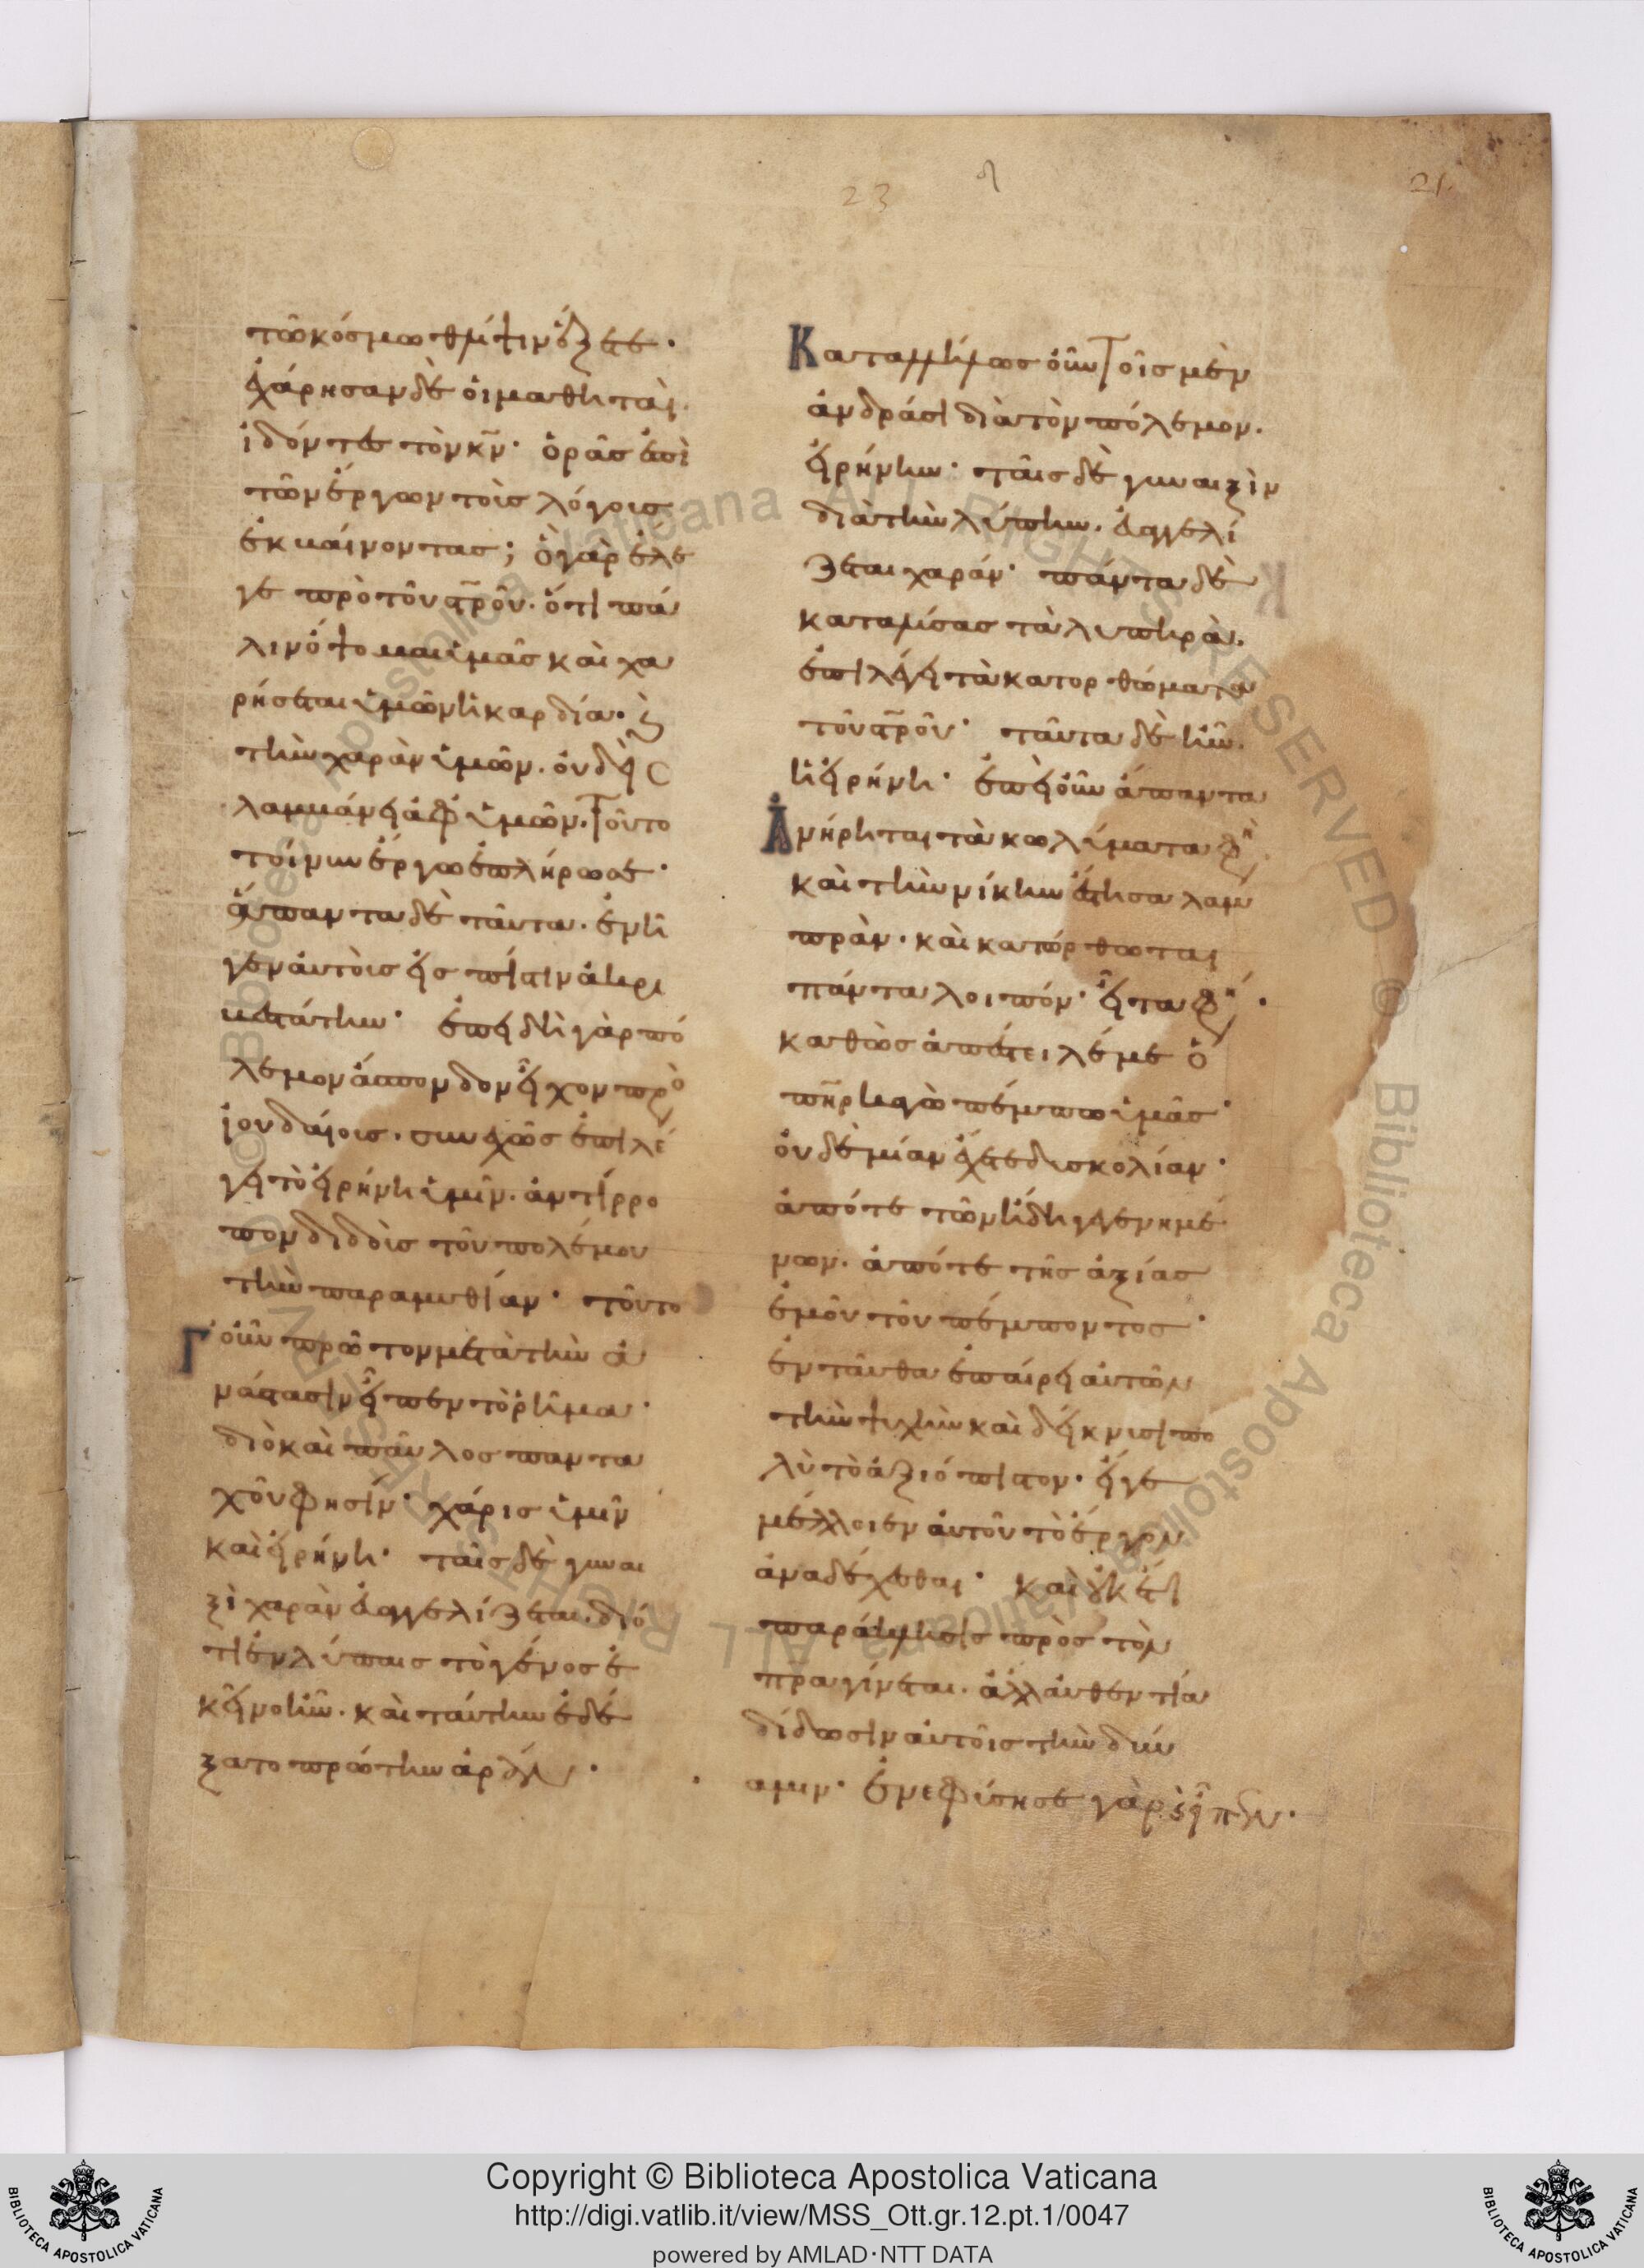 23
λ
21
τῶ κόσμω θλίψιν ἕξετε·
ἐχάρησαν δὲ οἱ μαθηταὶ
ἰδόντες τὸν κ̅ν̅· ὁρᾶς ἐπὶ
τῶν ἔργων τοὺς λόγους
ἐκβαίνοντας; ὃ γὰρ ἔλε
γε πρὸ τοῦ σ̅ρ̅οῦ. ὅτι πά
λιν ὄψομαι ὑμᾶς καὶ χα
ρήσεται ὑμῶν ἡ καρδία· καὶ
τὴν χαρὰν ὑμῶν. οὐδεὶς
λαμβάνει ἀφ' ὑμῶν. Τοῦτο
τοίνυν ἔργω ἐπλήρωσε·
ἅπαντα δὲ ταῦτα. ἐνῆ
γεν αὐτοὺς εἰς πίστιν ἀκρι
βεστάτην· ἐπειδὴ γὰρ πό
λεμον ἄσπονδον εἶχον πρὸς
ἰουδαίους. συνεχῶς ἐπιλέ
γει τὸ εἰρήνη ὑμῖν. ἀντίρρο
πον διδοὺς τοῦ πολέμου
τὴν παραμυθίαν· τοῦτο
γοῦν πρῶτον μετὰ τὴν ἀ
νάστασιν εἶπεν τὸ ῥῆμα·
διὸ καὶ παῦλος παντα
χοῦ φησίν· χάρις ὑμῖν
καὶ εἰρήνη· ταῖς δὲ γυναι
ξὶ χαρὰν εὐαγγελίζεται. διό
τι ἐν λύπαις τὸ γένος ἐ
κεῖνο ἦν. καὶ ταύτην ἐδέ
ξατο πρώτην ἀρὰν·
Καταλλήλως οὖν Τοῖς μὲν
ἀνδράσι διὰ τὸν πόλεμον.
εἰρήνην· ταῖς δὲ γυναιξὶν
διὰ τὴν λύπην. εὐαγγελί
ζεται χαράν· πάντα δὲ
καταλύσας τὰ λυπηρὰ.
ἐπιλέγει τὰ κατορθώματα
τοῦ σ̅ρ̅οῦ· ταῦτα δὲ ἦν.
ἡ εἰρήνη· ἐπεὶ οὖν ἅπαντα
Ἀνήρηται τὰ κωλύματα φη
καὶ τὴν νίκην ἔστησα λαμ
πρὰν. καὶ κατώρθωται
πάντα λοιπόν· εἶτα φη·
καθὼς ἀπέστειλέ με ὁ
π̅η̅ρ κἀγὼ πέμπω ὑμᾶς·
οὐδεμίαν ἔχετε δυσκολίαν·
ἀπό τε τῶν ἤδη γεγενημέ
νων. ἀπό τε τῆς ἀξίας
ἐμοῦ τοῦ πέμποντος·
ἐνταῦθα ἐπαίρει αὐτῶν
τὴν ψυχὴν καὶ δείκνυσι πο
λὺ τὸ ἀξιόπιστον· εἴγε
μέλλοιεν αὐτοῦ τὸ ἔργον
ἀναδέχεσθαι· καὶ οὐκέτι
παράκλησις πρὸς τὸν
π̅ρ̅α γίνεται. ἀλλ' αὐθεντία
δίδωσιν αὐτοῖς τὴν δύν
αμιν· ἐνεφύσησε γὰρ καὶ εἶπεν·
Copyright © Biblioteca Apostolica Vaticana
http://digi.vatlib.it/view/MSS_Ott.gr.12.pt.1/0047
powered by AMLAD·NTT DATA
BIBLIOTECA APOSTOLICA VATICANA
BIBLIOTECA APOSTOLICA VATICANA